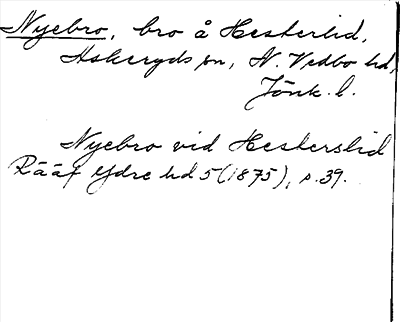 Nyebro, bro å Hesterlid,
Askeryds sn, N. Vedbo hd,
Jönk. l.
Nyebro vid Hesterslid
Rääf Ydre hd 5 (1875), s. 39.